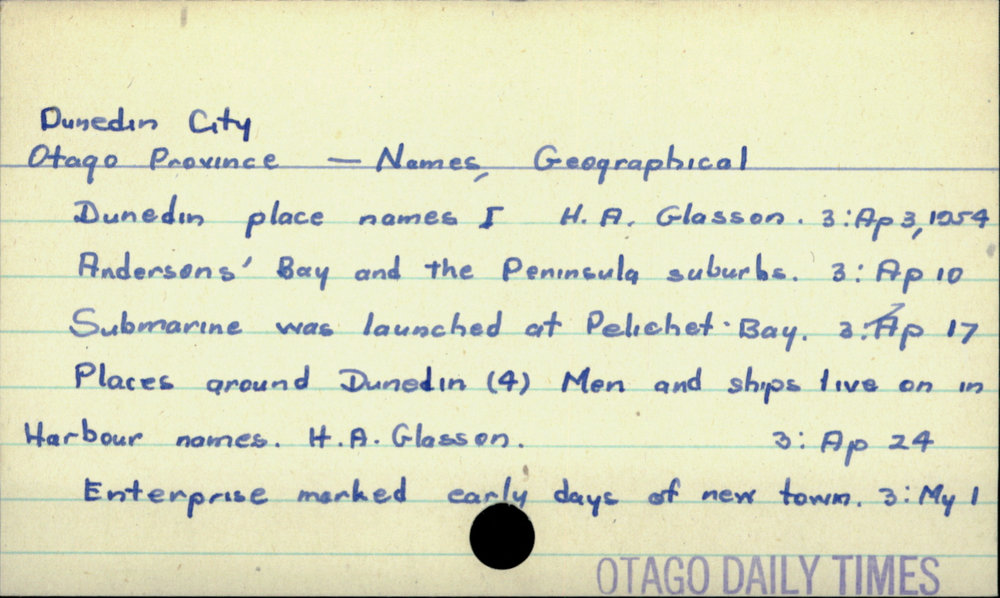 Dunedin City
Otago Province — Names, Geographical
Dunedin place names I H. A. Glasson. 3: Ap 3, 1954
Andersons' Bay and the Peninsula suburbs. 3: Ap 10
Submarine was launched at Pelichet Bay. 3: Ap 17
Places around Dunedin (4) Men and ships live on in
Harbour names. H.A. Glasson. 3: Ap 24
Enterprise marked early days of new town. 3: My 1
OTAGO DAILY TIMES